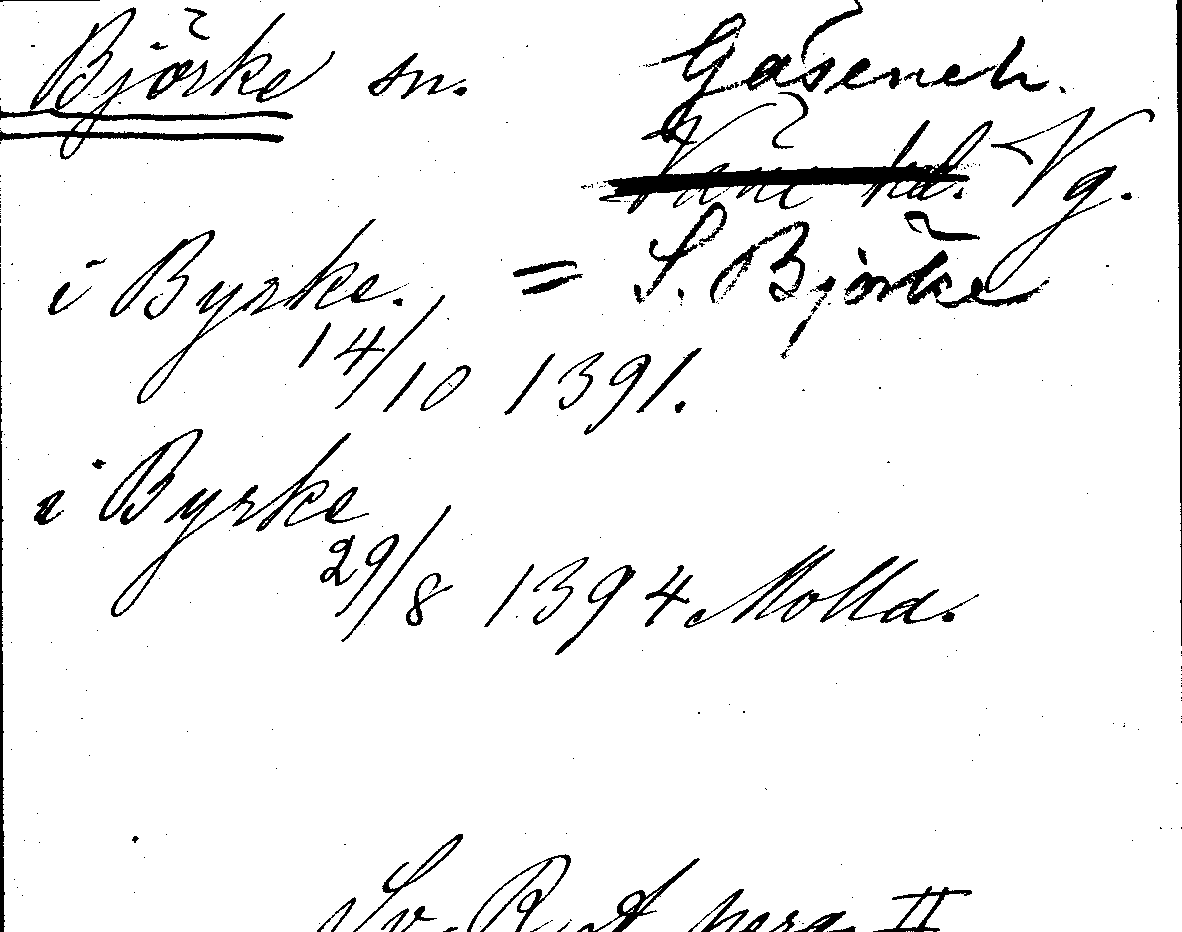 Björke sn. Gäseneh.
Väne hd. Vg.
i Byrke. = S. Björke
14/10 1391.
i Byrke
29/8 1394 Molla.
Sv. R. A. perg. II